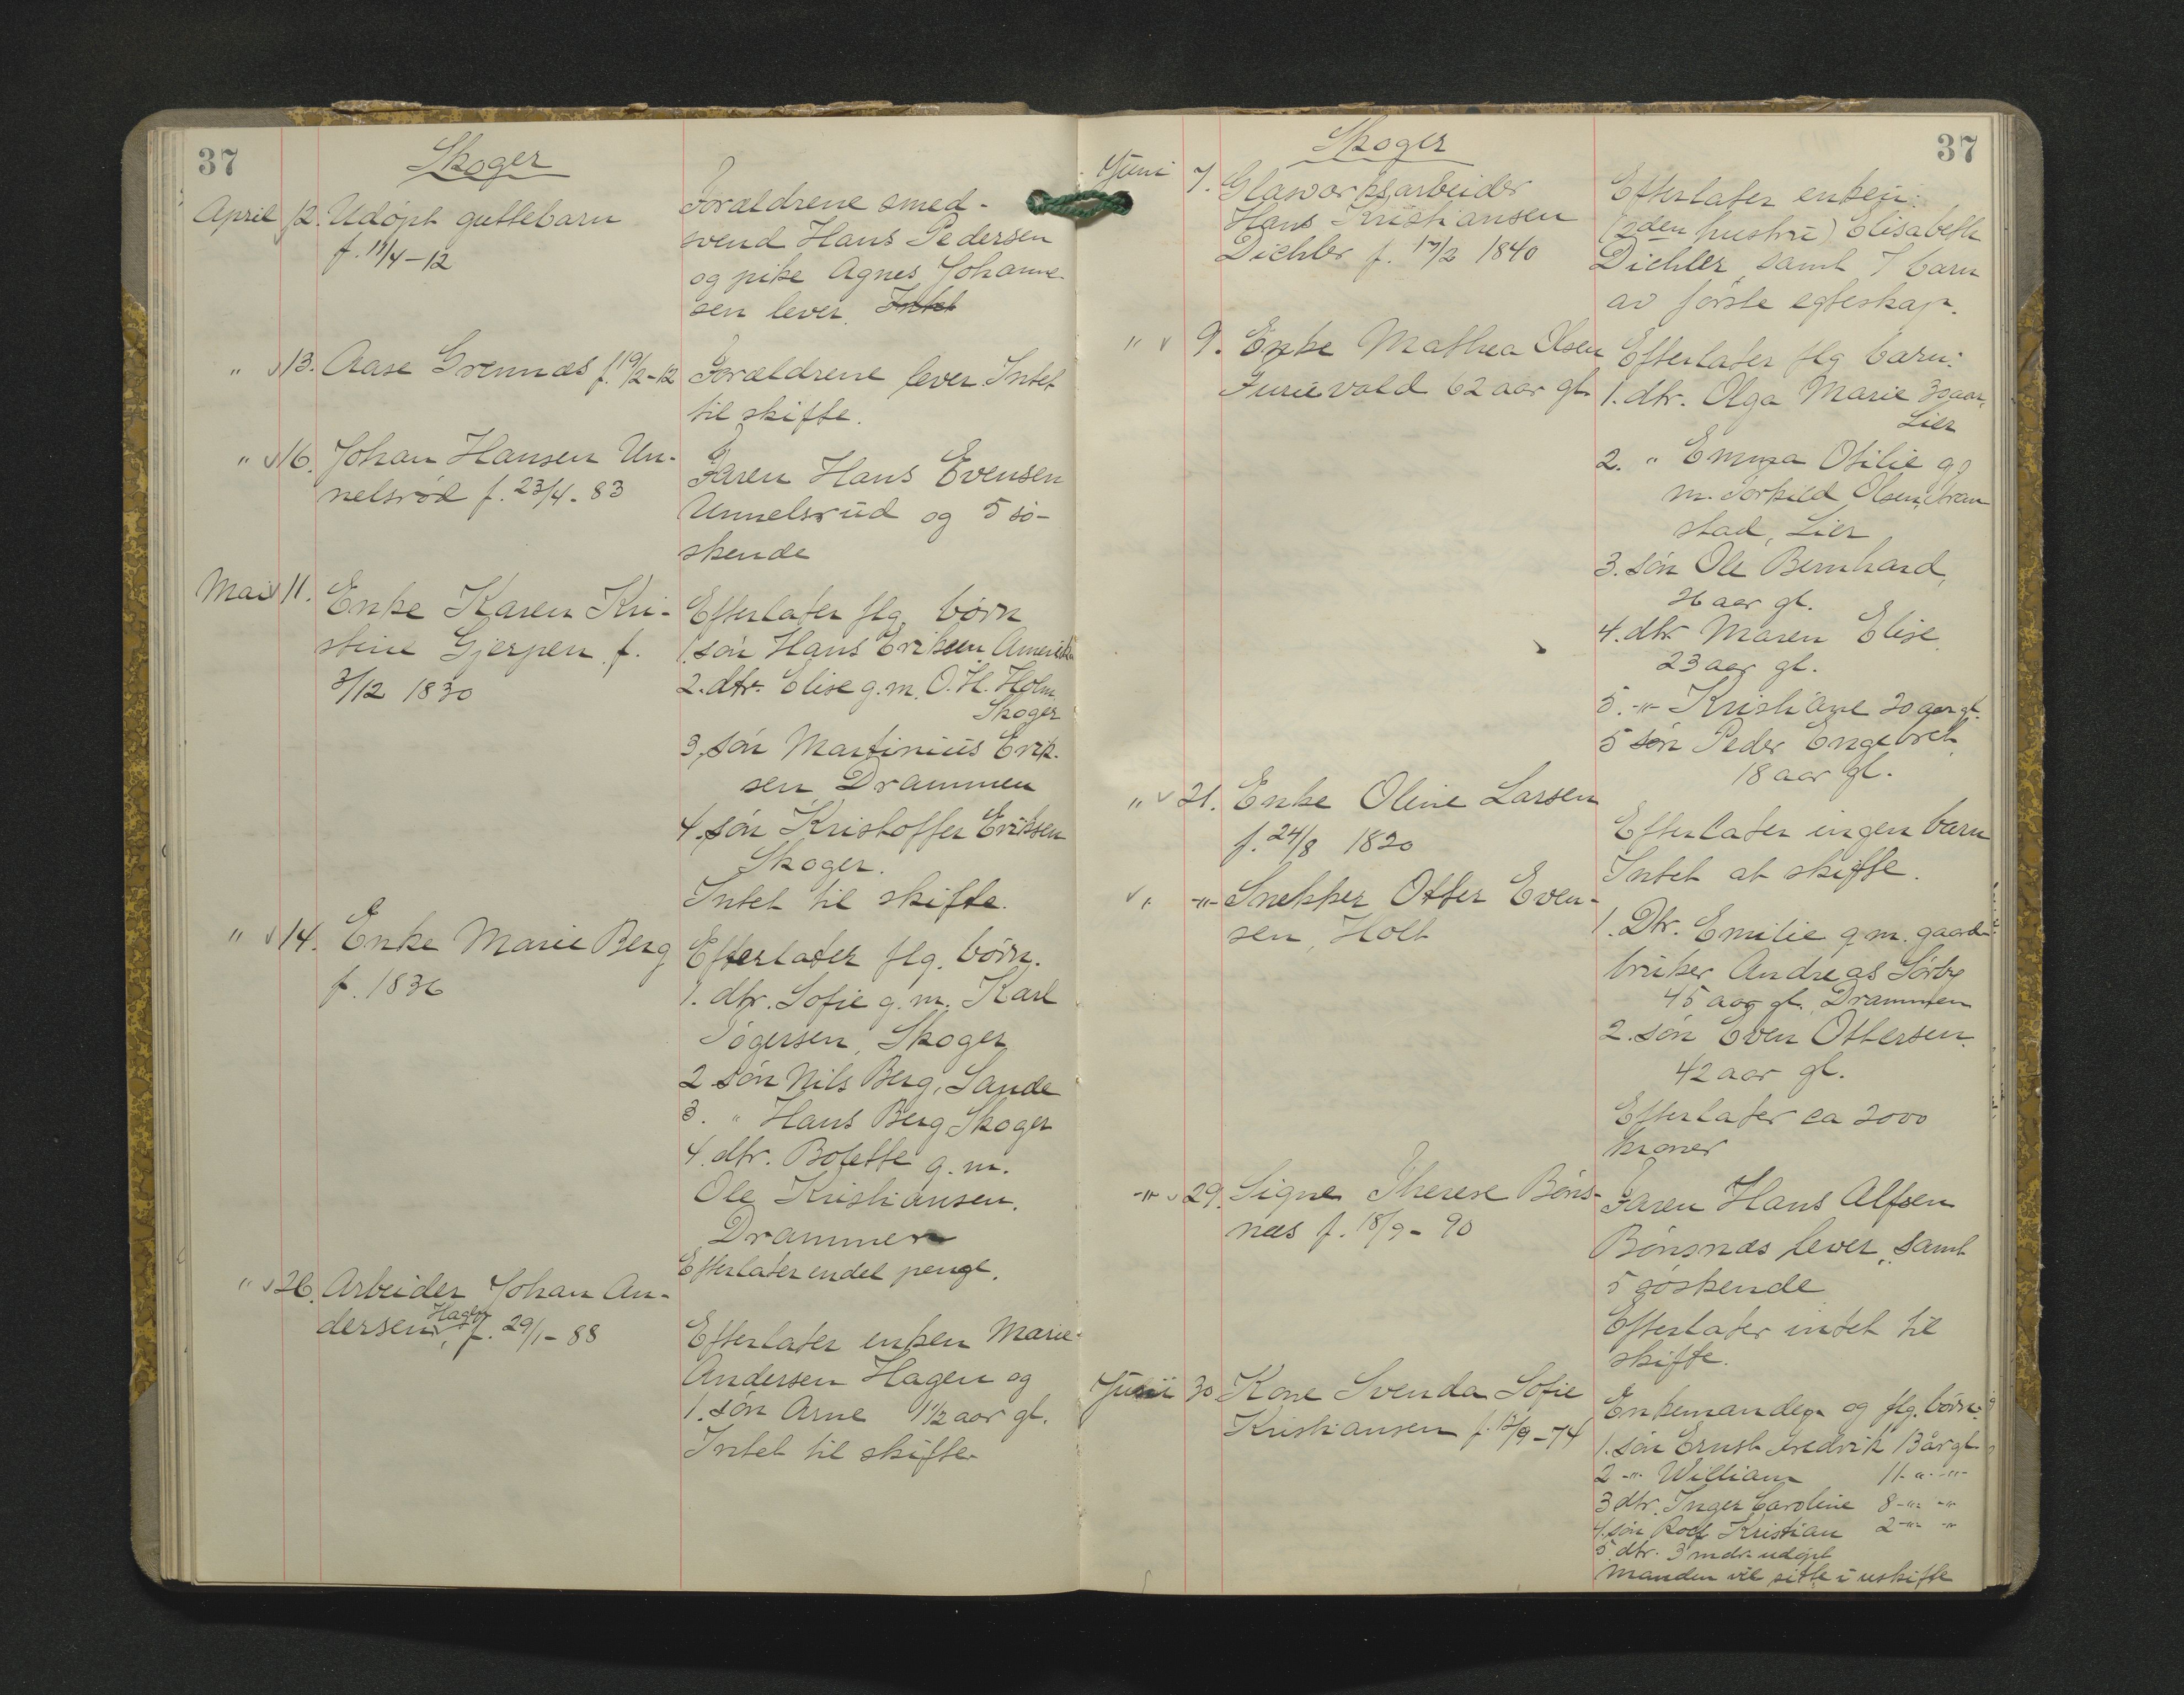 37
Skoger
April 12. Udöpt guttebarn
f. 11/4-12
Forældrene smed-
svend Hans Pedersen
og pike Agnes Johanne-
sen lever. Intet
" 13. Aase Grennæs f. 19/2-12
Forældrene lever Intet
til skifte.
" 16. Johan Hansen Un-
nelsrød f. 23/4-83
Faren Hans Evensen
Unnelsrud og 5 sö-
skende
Mai 11. Enke Karen Kri-
stine Gjerpen f.
3/12 1830
Efterlater flg. børn
1. sön Hans Eriksen Amerika
2. dtr. Elise g.m. O. H. Holm
Skoger
3. sön Martinius Erik-
sen Drammen
4. sön Kristoffer Eriksen
Skoger.
Intet til skifte.
" 14. Enke Marie Berg
f. 1836
Efterlater flg. børn.
1. dtr. Sofie g.m. Karl
Jögersen, Skoger
2 sön Nils Berg, Sande
3. " Hans Berg Skoger
4. dtr. Bolette g.m.
Ole Kristiansen.
Drammen
Efterlater endel penge.
" 26. Arbeider Johan An-
dersen Hagen, f. 29/1-88
Efterlater enken Marie
Andersen Hagen og
1. sön Arne 1 1/2 aar gl.
Intet til skifte
37
Skoger
Juni 7. Glasværksarbeider
Hans Kristiansen
Dichler f. 17/2 1840
Efterlater enken:
(2den hustru) Elisabeth
Dichler samt 7 barn
av förste egteskap.
" 9. Enke Mathea Olsen
Furuvald 62 aar gl.
Efterlater flg barn:
1. dtr. Olga Marie 30 aar,
Lier
2. " Emma Otilie g.
m. Torkild Olsen, Tran
stad, Lier
3. sön Ole Bernhard,
26 aar gl.
4. dtr Maren Elise
23 aar gl.
5. -"- Kristiane 20 aar gl.
5 sön Peder Engebret
18 aar gl.
" 21. Enke Oline Larsen
f. 24/8 1820
Efterlater ingen barn
Intet at skifte.
" -"- Snekker Otter Even-
sen, Holt
1. Dtr. Emilie g.m. gaard-
bruker Andreas Sörby
45 aar gl. Drammen
2. sön Even Ottersen.
42 aar gl.
Efterlater ca 2000
kroner
-"- 29. Signe Therese Böns-
næs f. 18/9-90
Faren Hans Alfsen
Bönsnæs lever, samt
5 söskende
Efterlater intet til
skifte.
Juni 30 Kone Svenda Sofie
Kristiansen f. 12/9-74
Enkemanden og flg. børn:
1. sön Ernst Fredrik 13 år gl
2 -"- William 11 -"- -"-
3 dtr. Inger Caroline 8 -"- -"-
4. sön Rolf Kristian 2 -"- -"-
5 dtr. 3 mdr udöpt
Manden vil sitte i uskifte